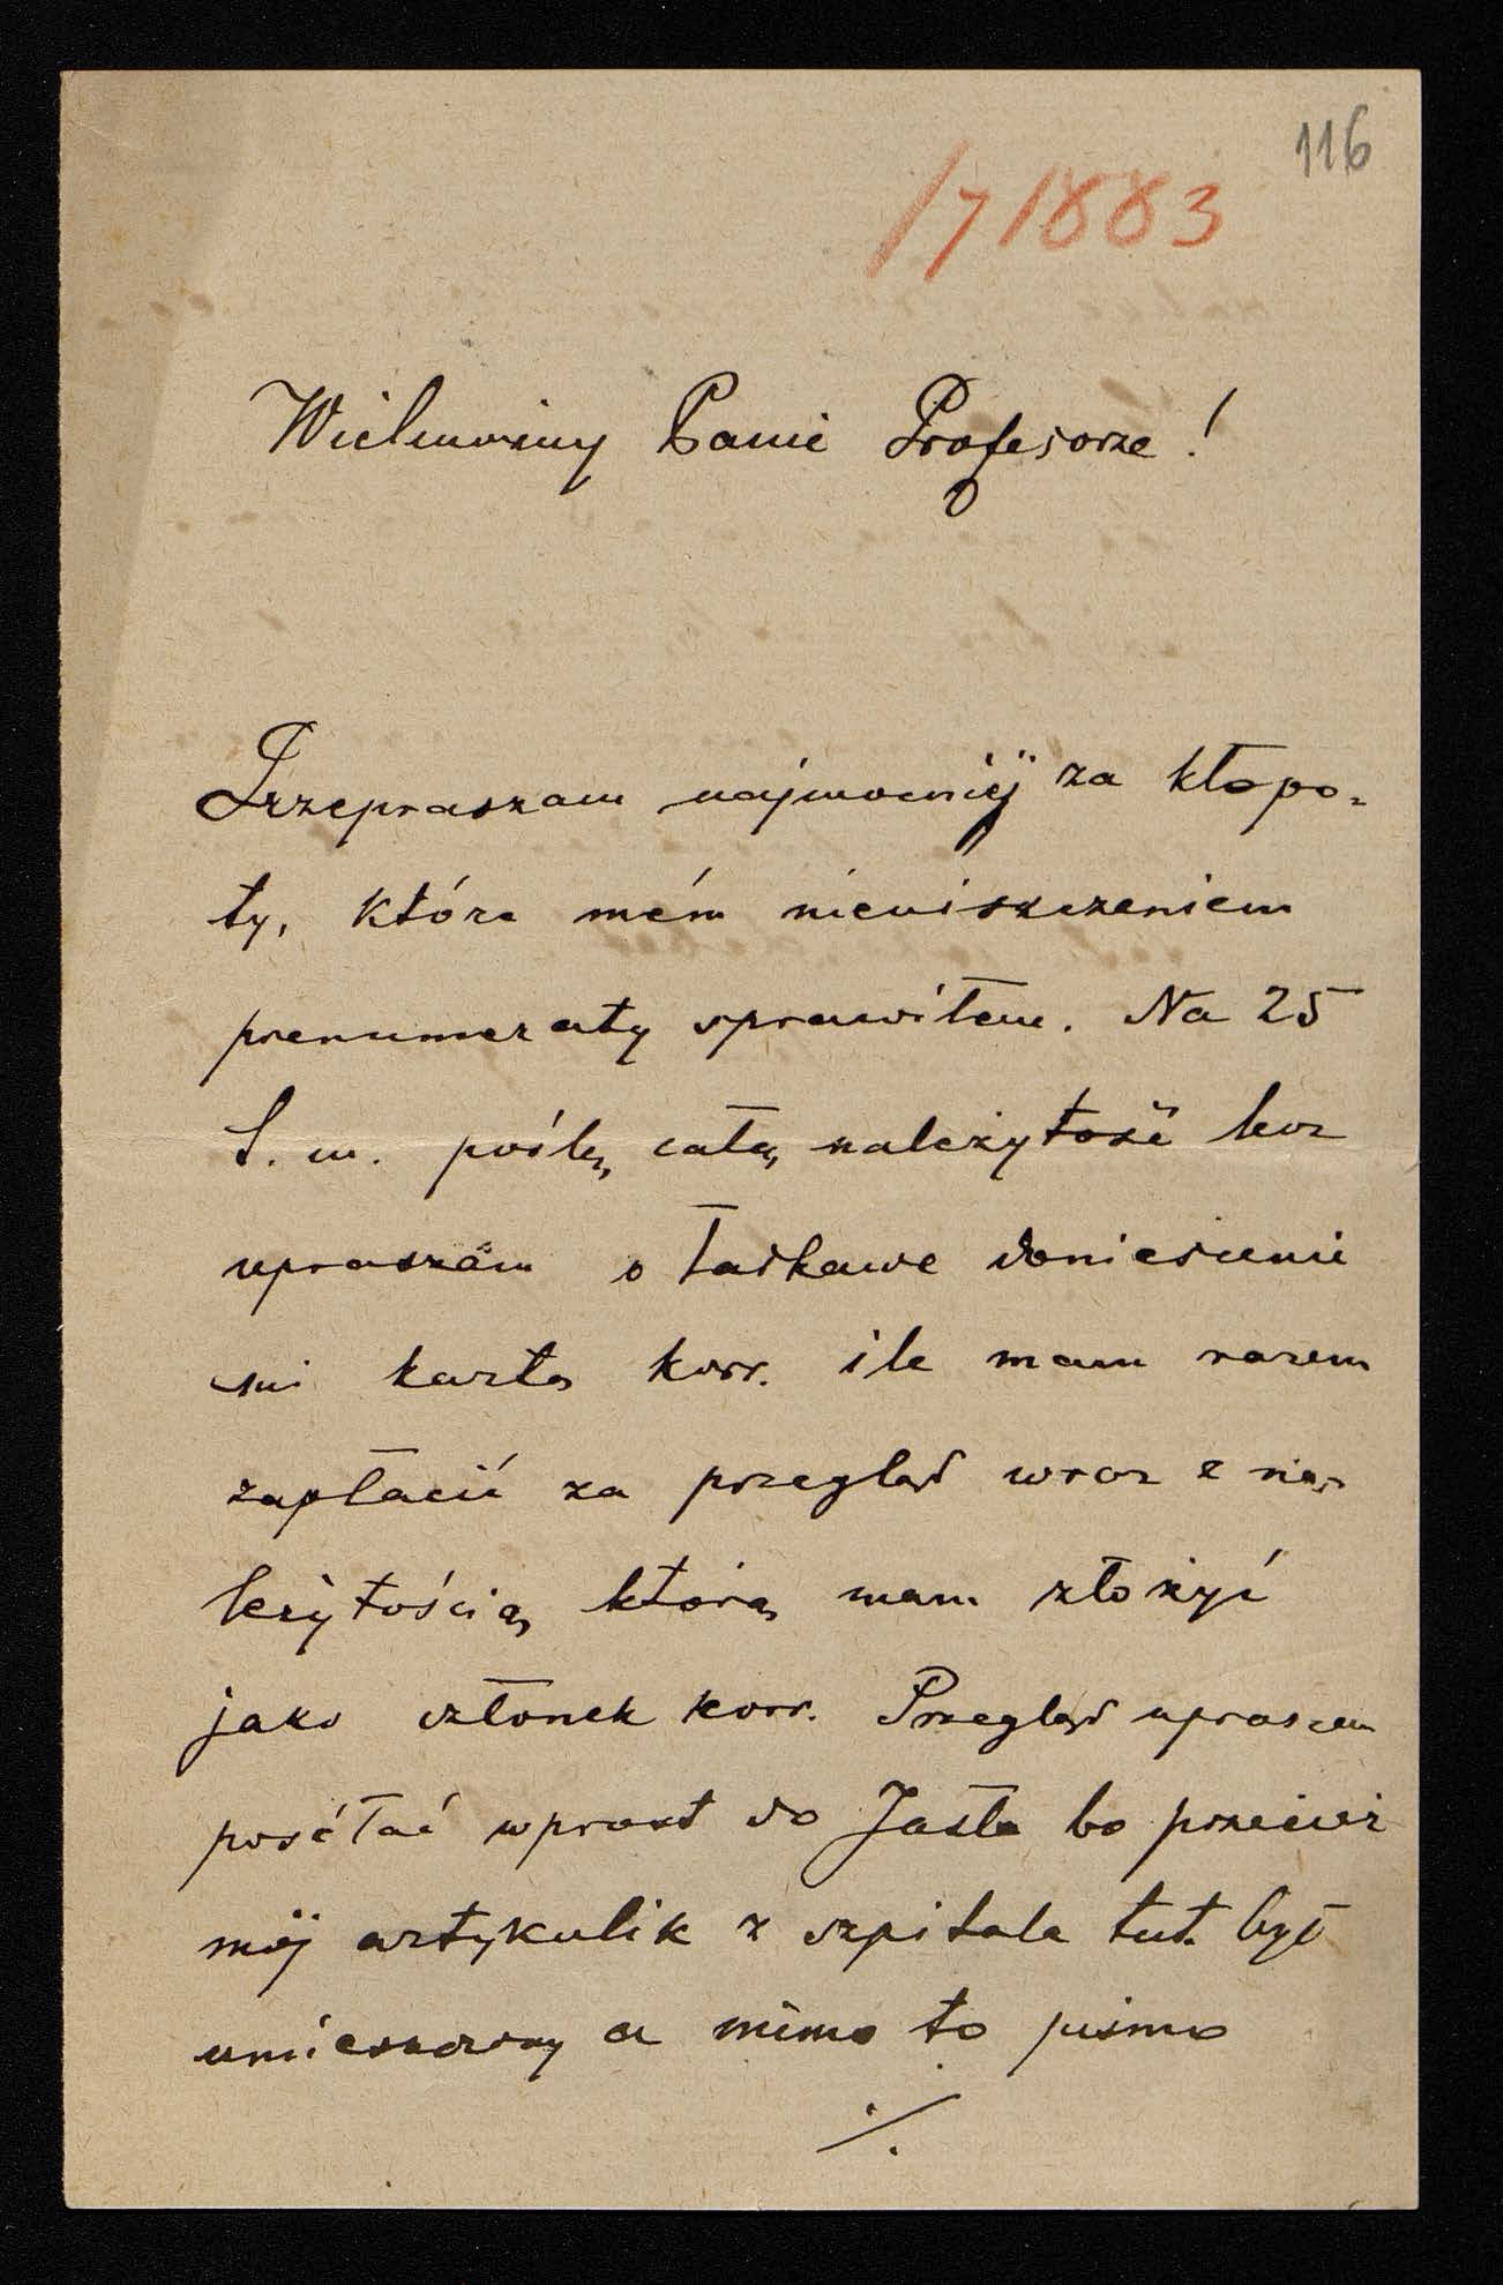 116
1/7 1883
Wielmożny Panie Profesorze!
Przepraszam najmocniéj za kłopo-
ty, które mém nieuiszczeniem
prenumeraty sprawiłem. Na 25
b. m. poślę całą należytość lecz
upraszam o łaskawe doniesienie
mi kartą korr. ile mam razem
zapłacić za przegląd wraz z na-
leżytością którą mam złożyć
jako członek korr. Przegląd upraszam
posełać wprost do Jasła bo przecież
mój artykulik z szpitala tut. był
umieszczony a mimo to pismo
./.